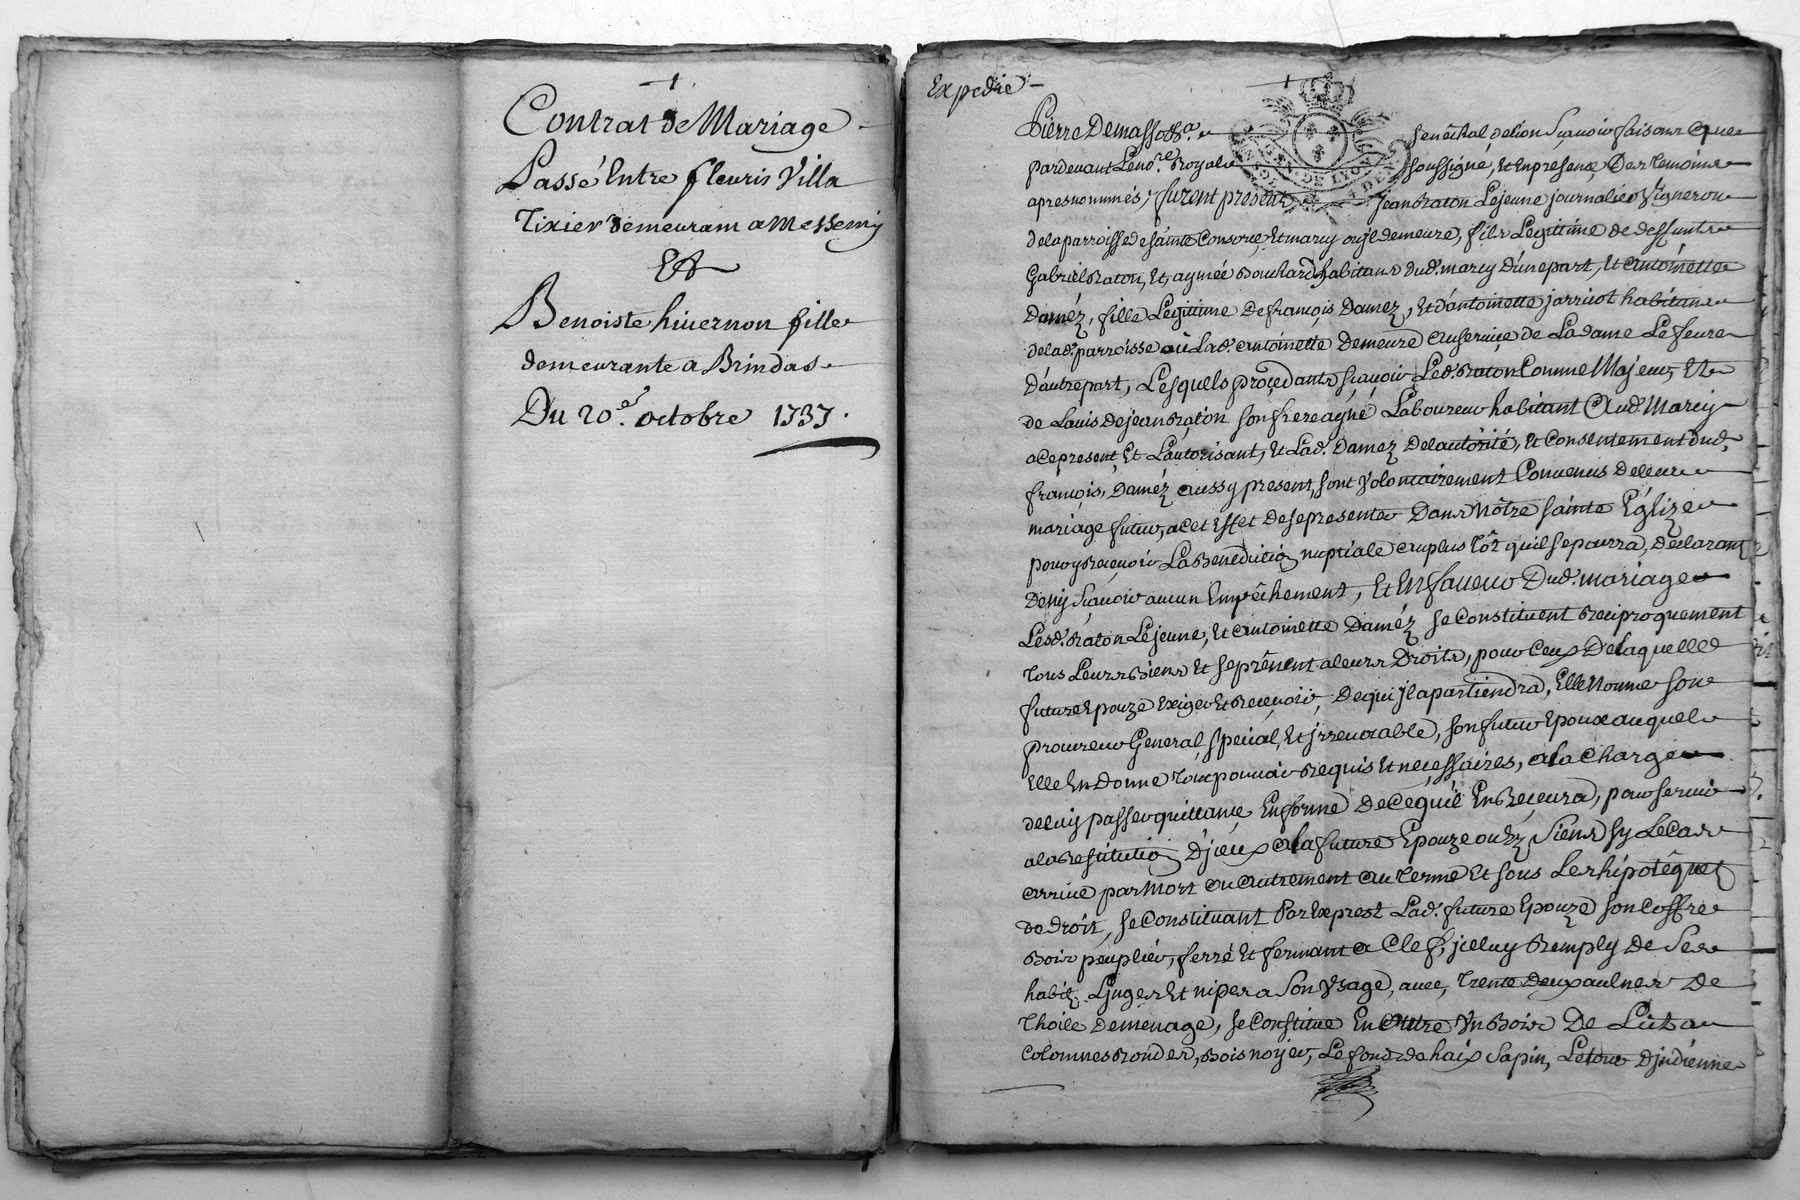 Contrat de Mariage
Passé Entre fleuris Villa
Tixier demeurant a Messemy
Et
Benoiste hivernon fille
demeurante a Brindas
Du 20.e octobre 1737.
Expedié
Pierre Demasso &a. senéchal delion sçavoir faisons que
pardevant Le no.re Royal soussigné, Et En presence Des temoins
apres nommés, furent presents jean Raton Lejeune journalier Vigneron
de la parroisse de sainte Consorce, Et marcy ou jl demeure, fils Legitime de deffunts
Gabriel Raton, Et, aymée Bouchard habitans dud. marcy d'une part, Et Antoinette
Daméz, fille Legitime de françois Damez, Et d'antoinette jarricot habitans
de lad. parroisse où Lad. antoinette Demeure Au service de La dame Lefeure
D'autre part, Lesquels proçedants sçavoir Led. Raton Comme Majeur, Et
de Lauis de jean Raton son frere ayné Laboureur habitant Aud. Marcy
a ce present Et L'autorisant, Et Lad. Damez De l'autorité, Et Consentement dud.
françois Daméz aussy present, sont Volontairement Convenus de leur
mariage futur, a cet Effet de se presenter Dans Nôtre sainte Églize
pour y Reçevoir La Benediction nuptiale au plus tôt qu'il se pourra, Declarant
De n'y sçavoir aucun Empêchement, Et En faveur Dud. mariage
Lesd. Raton Lejeune, Et Antoinette Daméz se Constituent Reciproquement
tous Leurs Biens Et se prênent a leurs Droits, pour Ceux De laquelle
future Epouze Exiger Et Recevoir, De qui jl apartiendra, Elle Nomme son
procureur General, special, Et jrrevocable, son futur Epoux auquel
Elle En Donne tout pouvoir Requis Et neçessaires, a la Charge
de luy passer quittançe En forme De Ce qu'il En Reçevra, pour servir
a la Restitution D'jceux a la future Epouze ou Ez Siens sy Le Cas
arrive par Mort ou Autrement au terme Et sous Les hipotêques
de Droit, se Constituant Par Exprest Lad. future Epouze son Coffre
Bois peuplier, ferré Et fermant a Clef, jceluy Remply de Ses
habits, Linges Et nipes a Son Vsage, avec, trente Deux aulnes De
thoile De menage, se Constitue En Outre Vn Bois De Lict au
Colomnes Rondes, Bois noyer, Le fond d'haix Sapin, Le tour d'jndienne